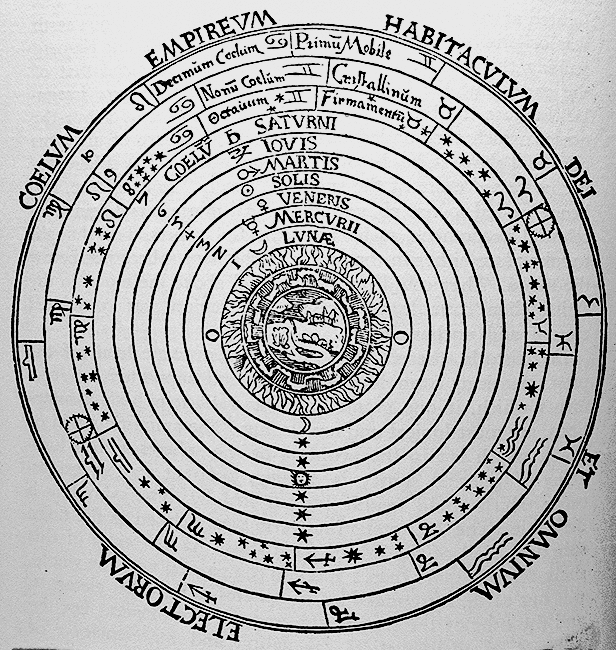 COELVM EMPIREVM HABITACVLVM DEI ET OMNIVM ELECTORVM
Decimum Coelum Primũ Mobile
Nonũ Coelum Cristallinum
Octauum Firmamentũ
COELV SATVRNI
IOVIS
MARTIS
SOLIS
VENERIS
MERCVRII
LVNÆ
9
8
7
6
5
4
3
2
1